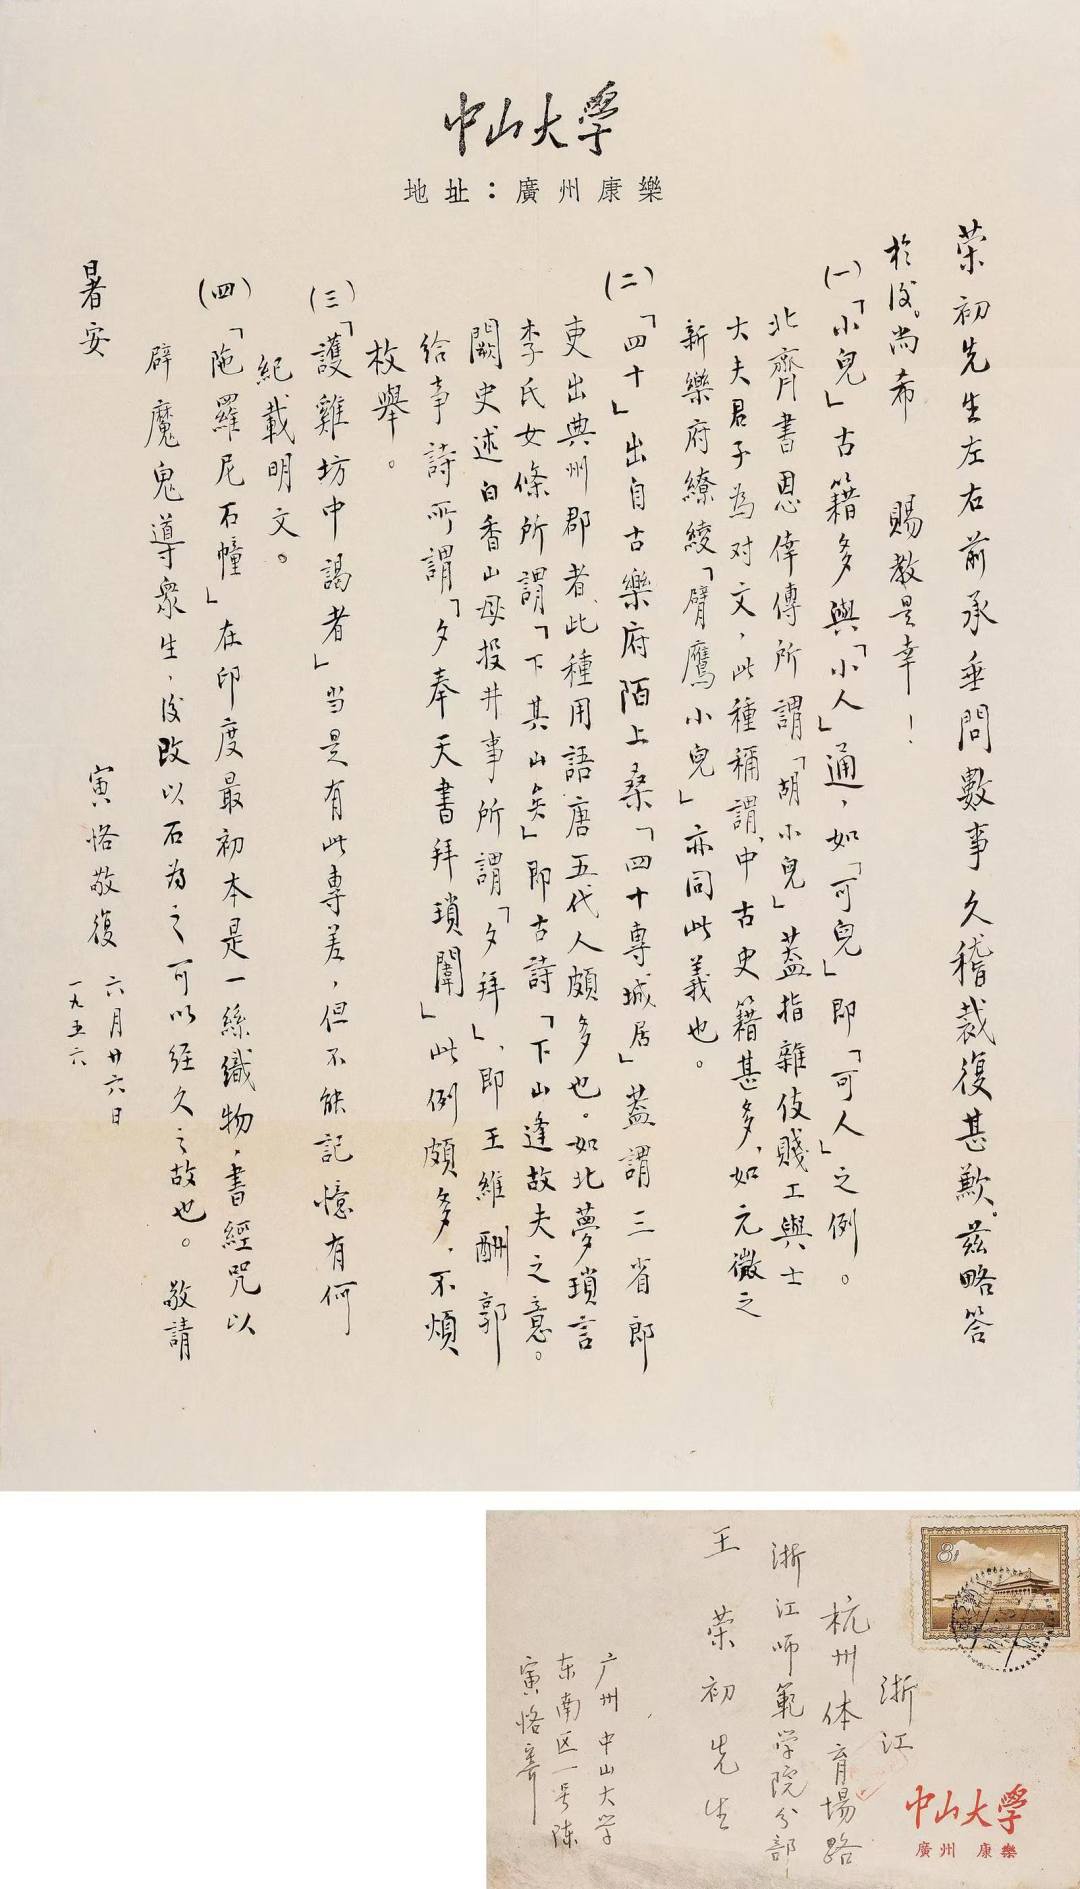 中山大學
地址：廣州康樂
荣初先生左右前承垂問數事久稽裁復甚歉。茲略答
於後。尚希　賜教是幸！
(一)「小兒」古籍多與「小人」通，如「可兒」即「可人」之例。
北齊書恩倖傳所謂「胡小兒」蓋指雜伎賤工與士
大夫君子為对文，此種稱謂，中古史籍甚多，如元微之
新樂府繚綾「臂鷹小兒」亦同此義也。
(二)「四十」出自古樂府陌上桑「四十專城居」蓋謂三省郎
吏出典州郡者，此種用語唐五代人頗多也。如北夢瑣言
李氏女條所謂「下其山矣」即古詩「下山逢故夫之意。
闕史述白香山母投井事所謂「夕拜」，即王維酬郭
給事詩所謂「夕奉天書拜瑣闈」此例頗多，不煩
枚舉。
(三)「護雞坊中謁者」当是有此專差，但不能記憶有何
紀載明文。
(四)「陁羅尼石幢」在印度最初本是一絲織物，書經咒以
辟魔鬼導衆生，後改以石為之可以經久之故也。敬請
暑安
寅恪敬復 六月廿六日
一九五六
8
浙江
杭州体育場路
浙江师範学院分部
王荣初先生
广州中山大学
东南区一号陈
寅恪寄
中山大學
廣州 康樂